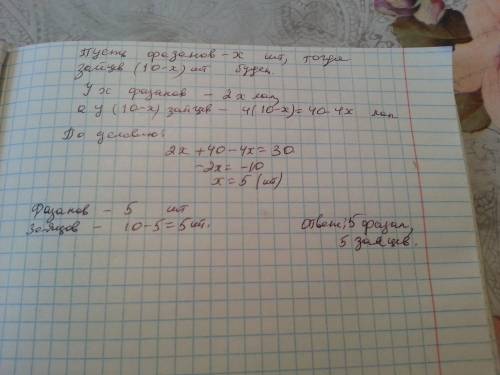 Пусть фазанов - x шт, тогда
зайцев (10-x) шт будет.
У x фазанов - 2x лап,
а у (10-x) зайцев - 4(10-x)=40-4x лап
По условию:
2x+40-4x=30
-2x=-10
x=5 (шт)
Фазанов - 5 шт
Зайцов - 10-5=5 шт.
Ответ: 5 фазан,
5 зайцев.